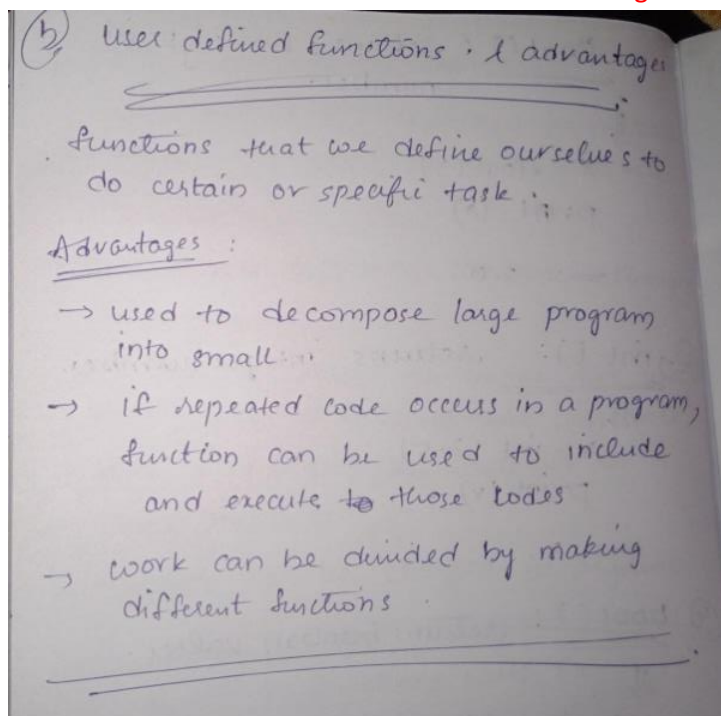 b) user defined functions. & advantages
functions that we define ourselves to
do certain or specific task.
Advantages :
→ used to decompose large program
into small.
→ if repeated code occurs in a program,
function can be used to include
and execute those codes.
→ work can be divided by making
different functions.